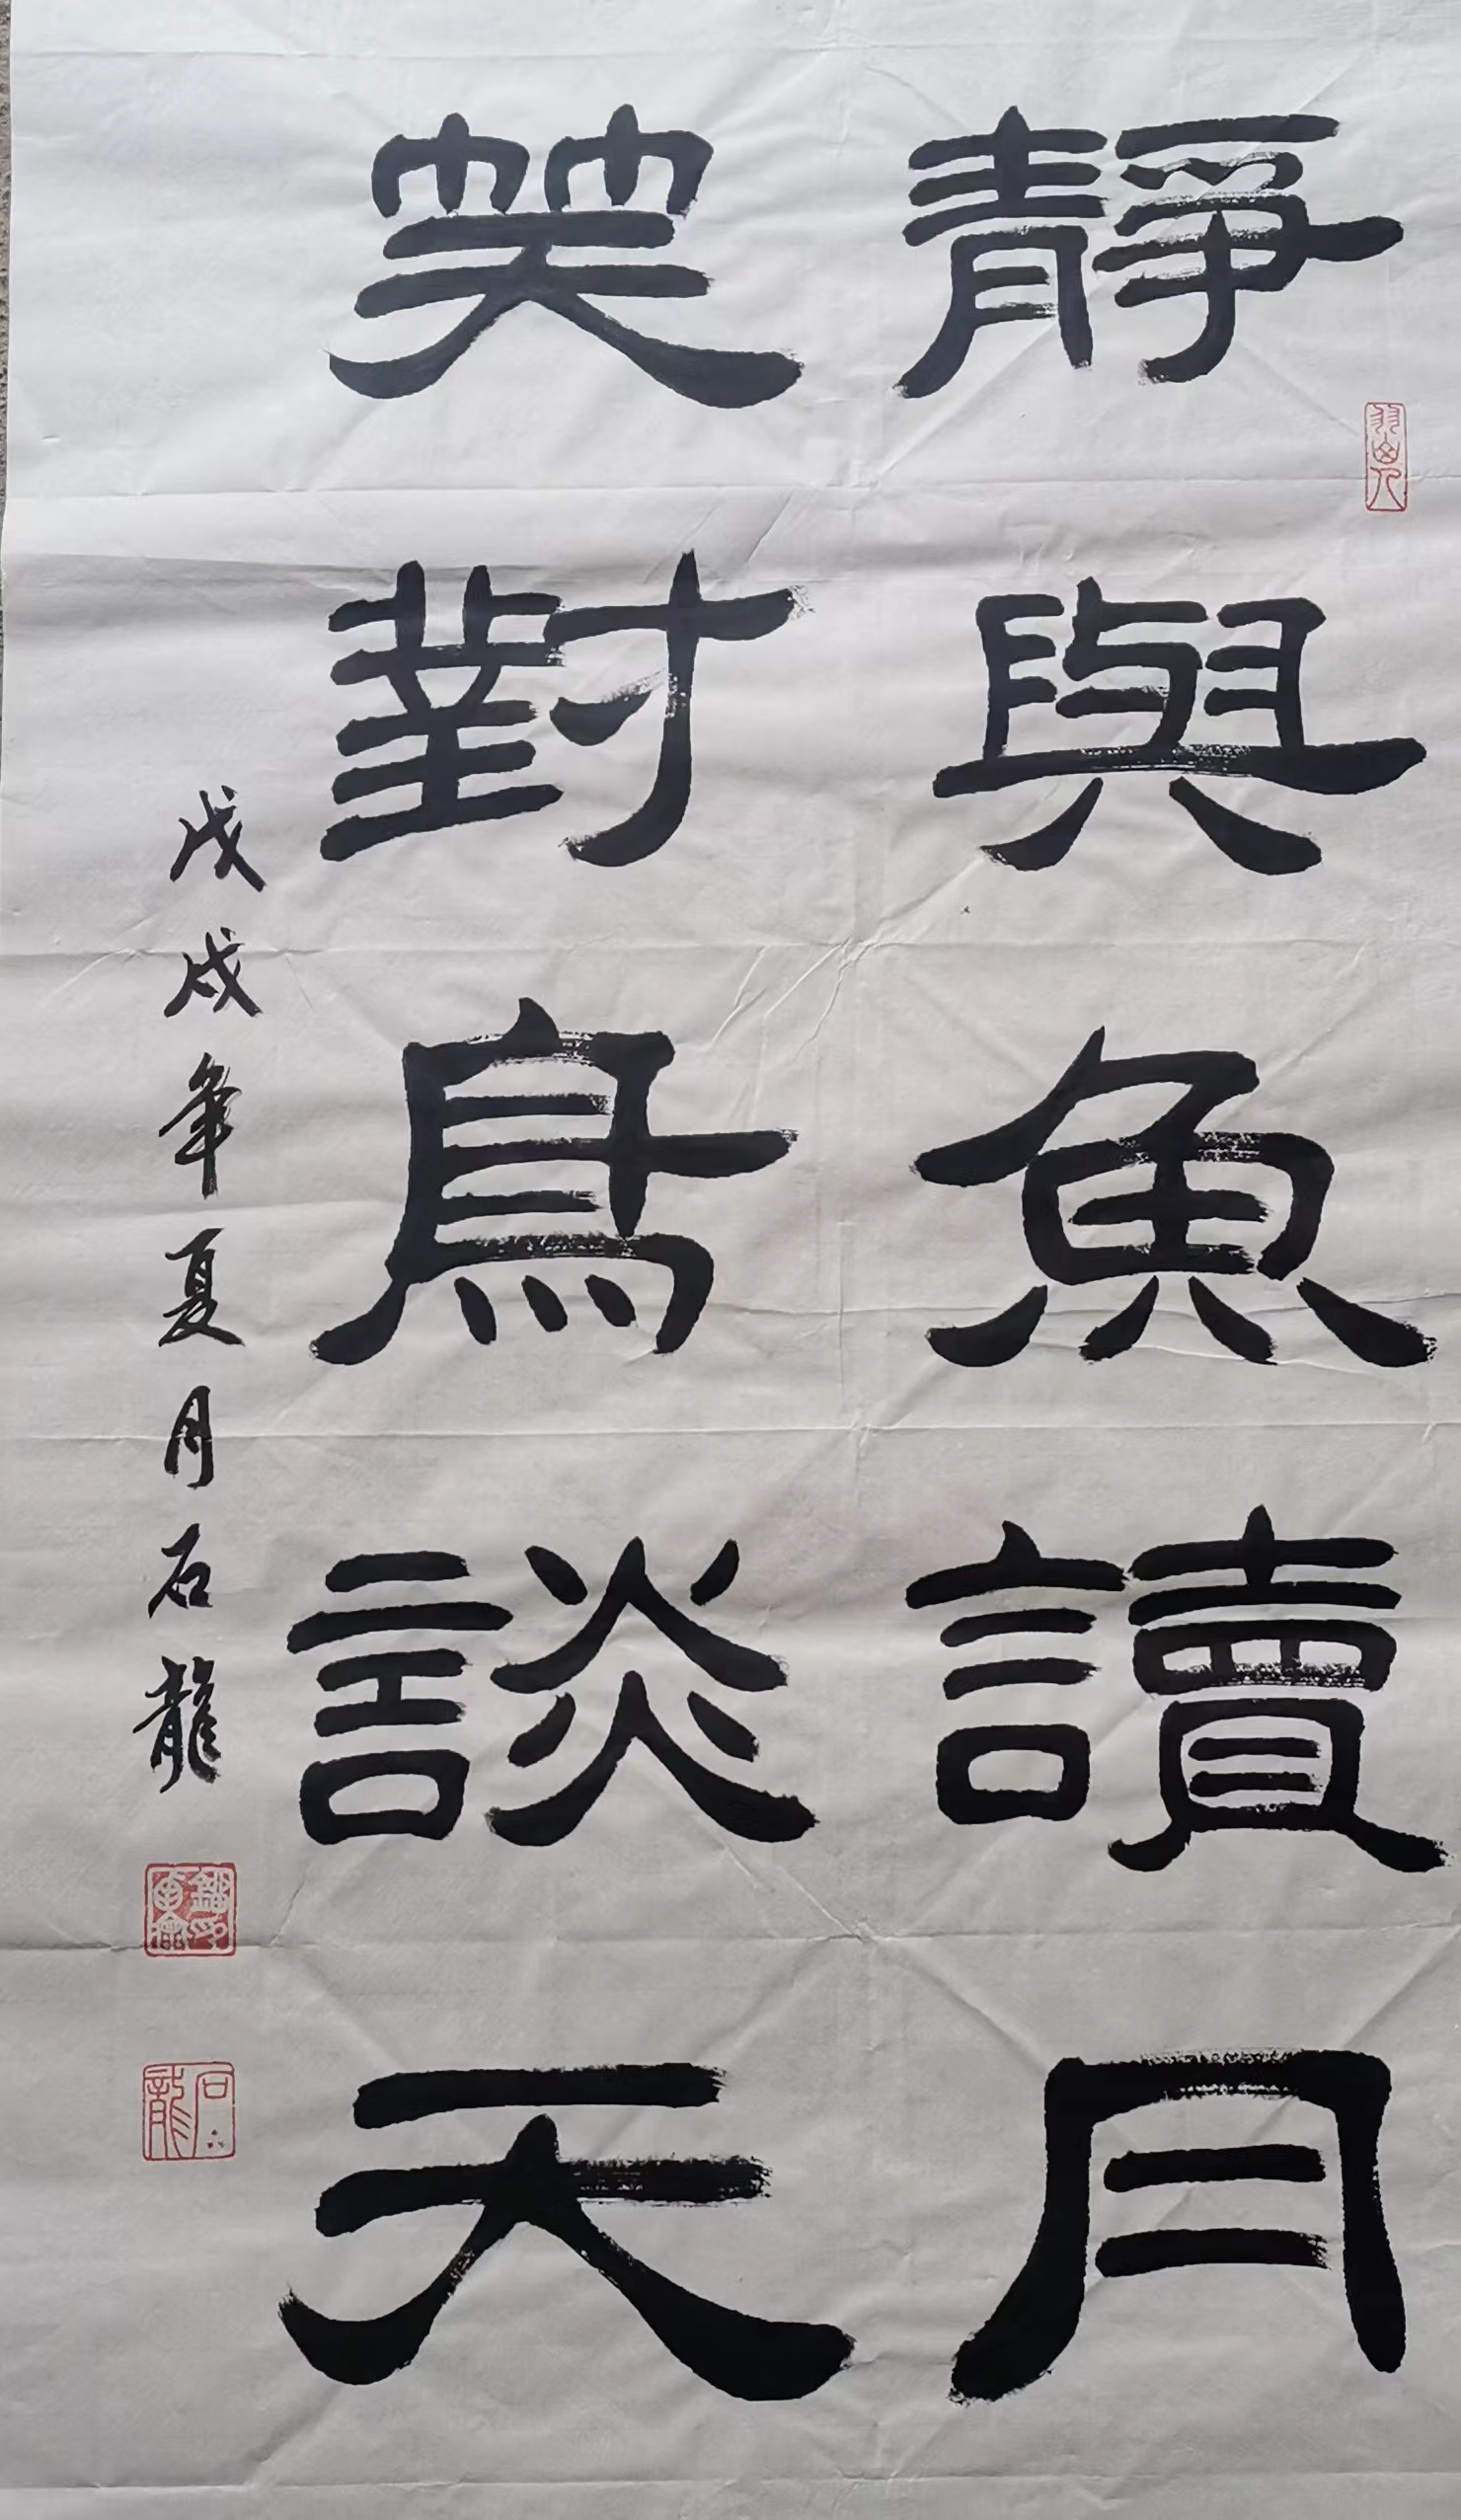 靜與魚讀月
笑對鳥談天
戊戌年夏月石龍
石龍